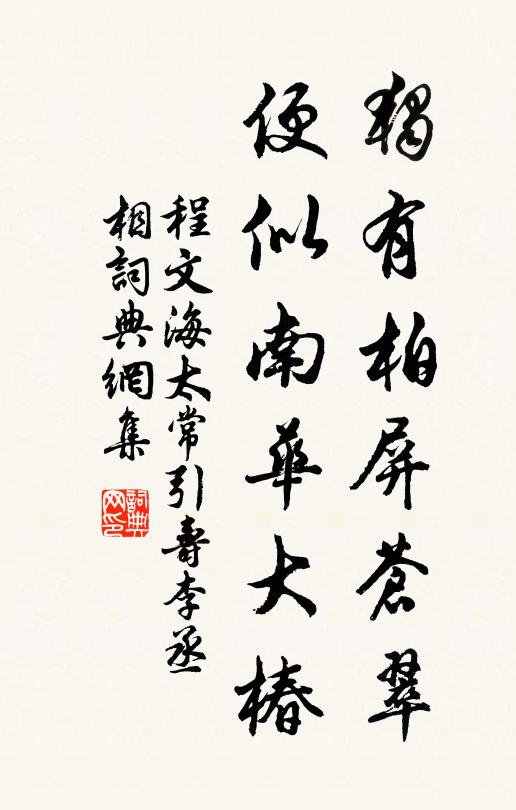 獨有柏屏蒼翠
便似南華大椿
程文海太常引壽李丞
相詞典網集
詞典网印